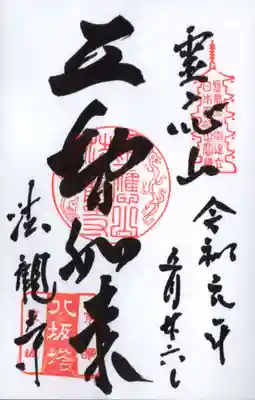 靈应山
令和元年
五月廿六日
五智如来
法觀寺
八坂塔